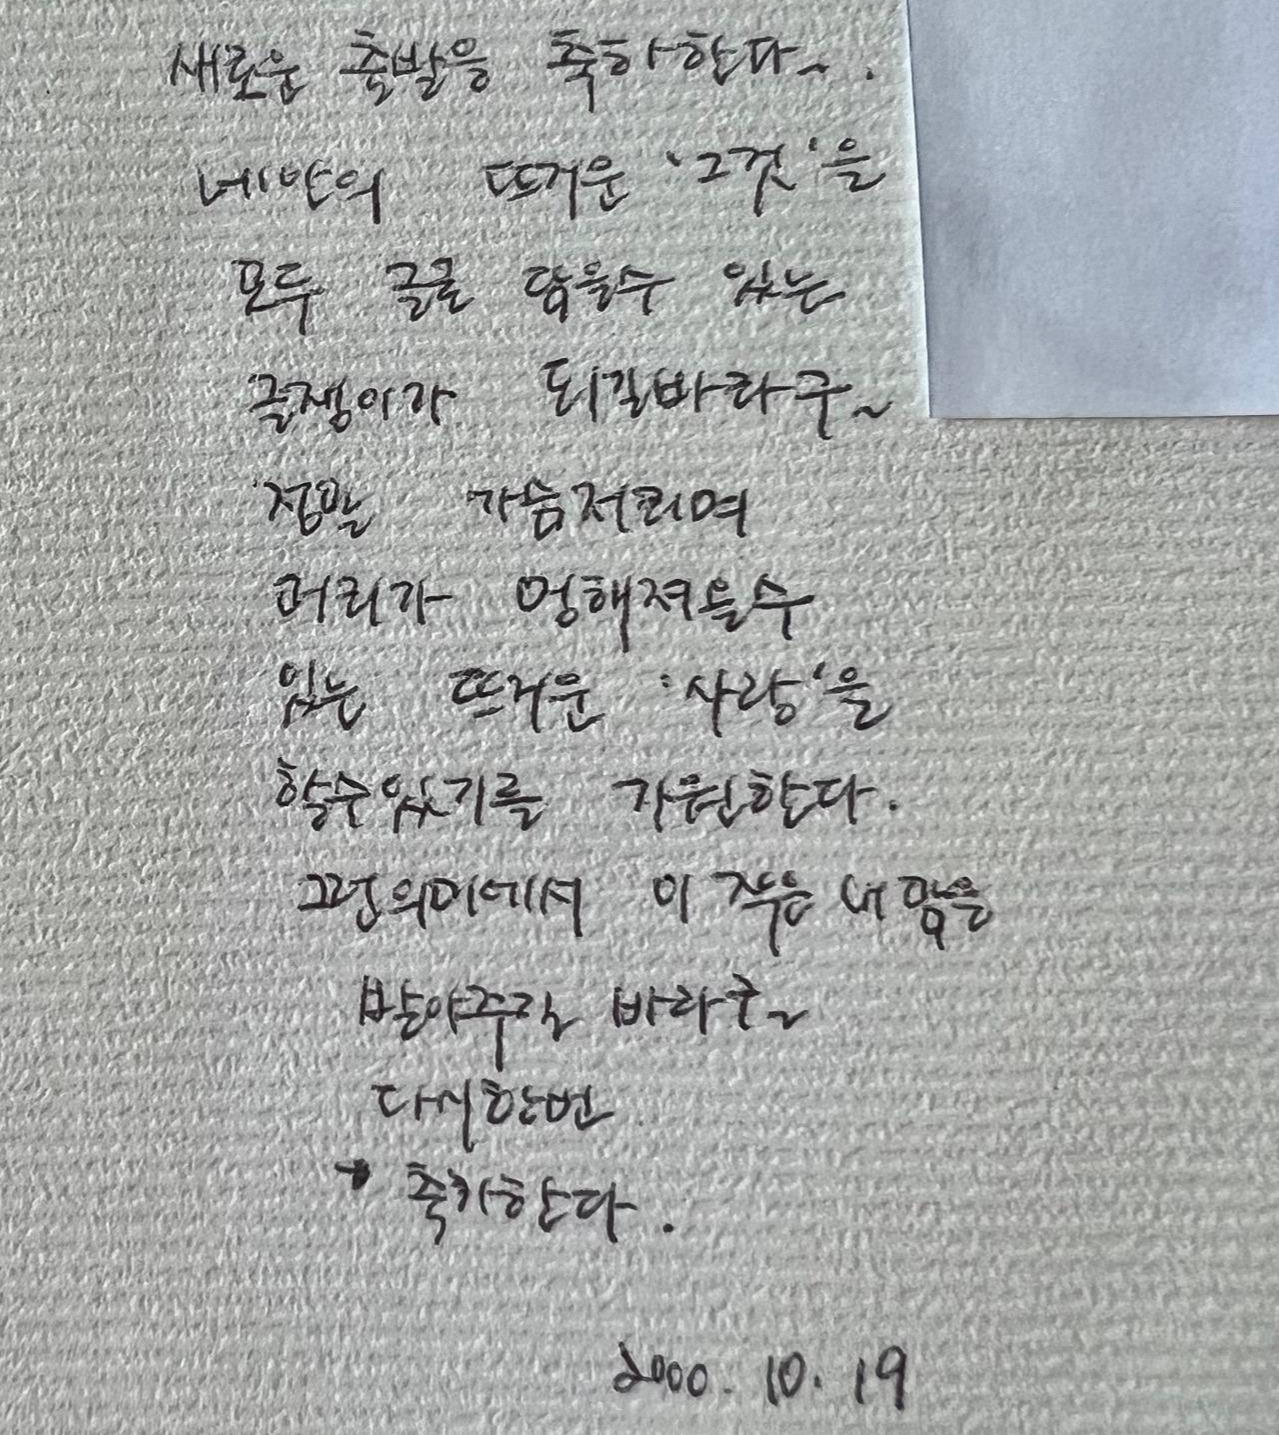 새로운 출발을 축하한다~.
네안의 뜨거운 '그것'을
모두 글로 담을수 있는
글쟁이가 되길바라구~
정말 가슴저리며
머리가 멍해져올수
있는 뜨거운 '사랑'을
할수있기를 기원한다.
그런의미에서 이 작은 내 맘을
받아주길 바라구~
다시한번
축하한다.
2000. 10. 19